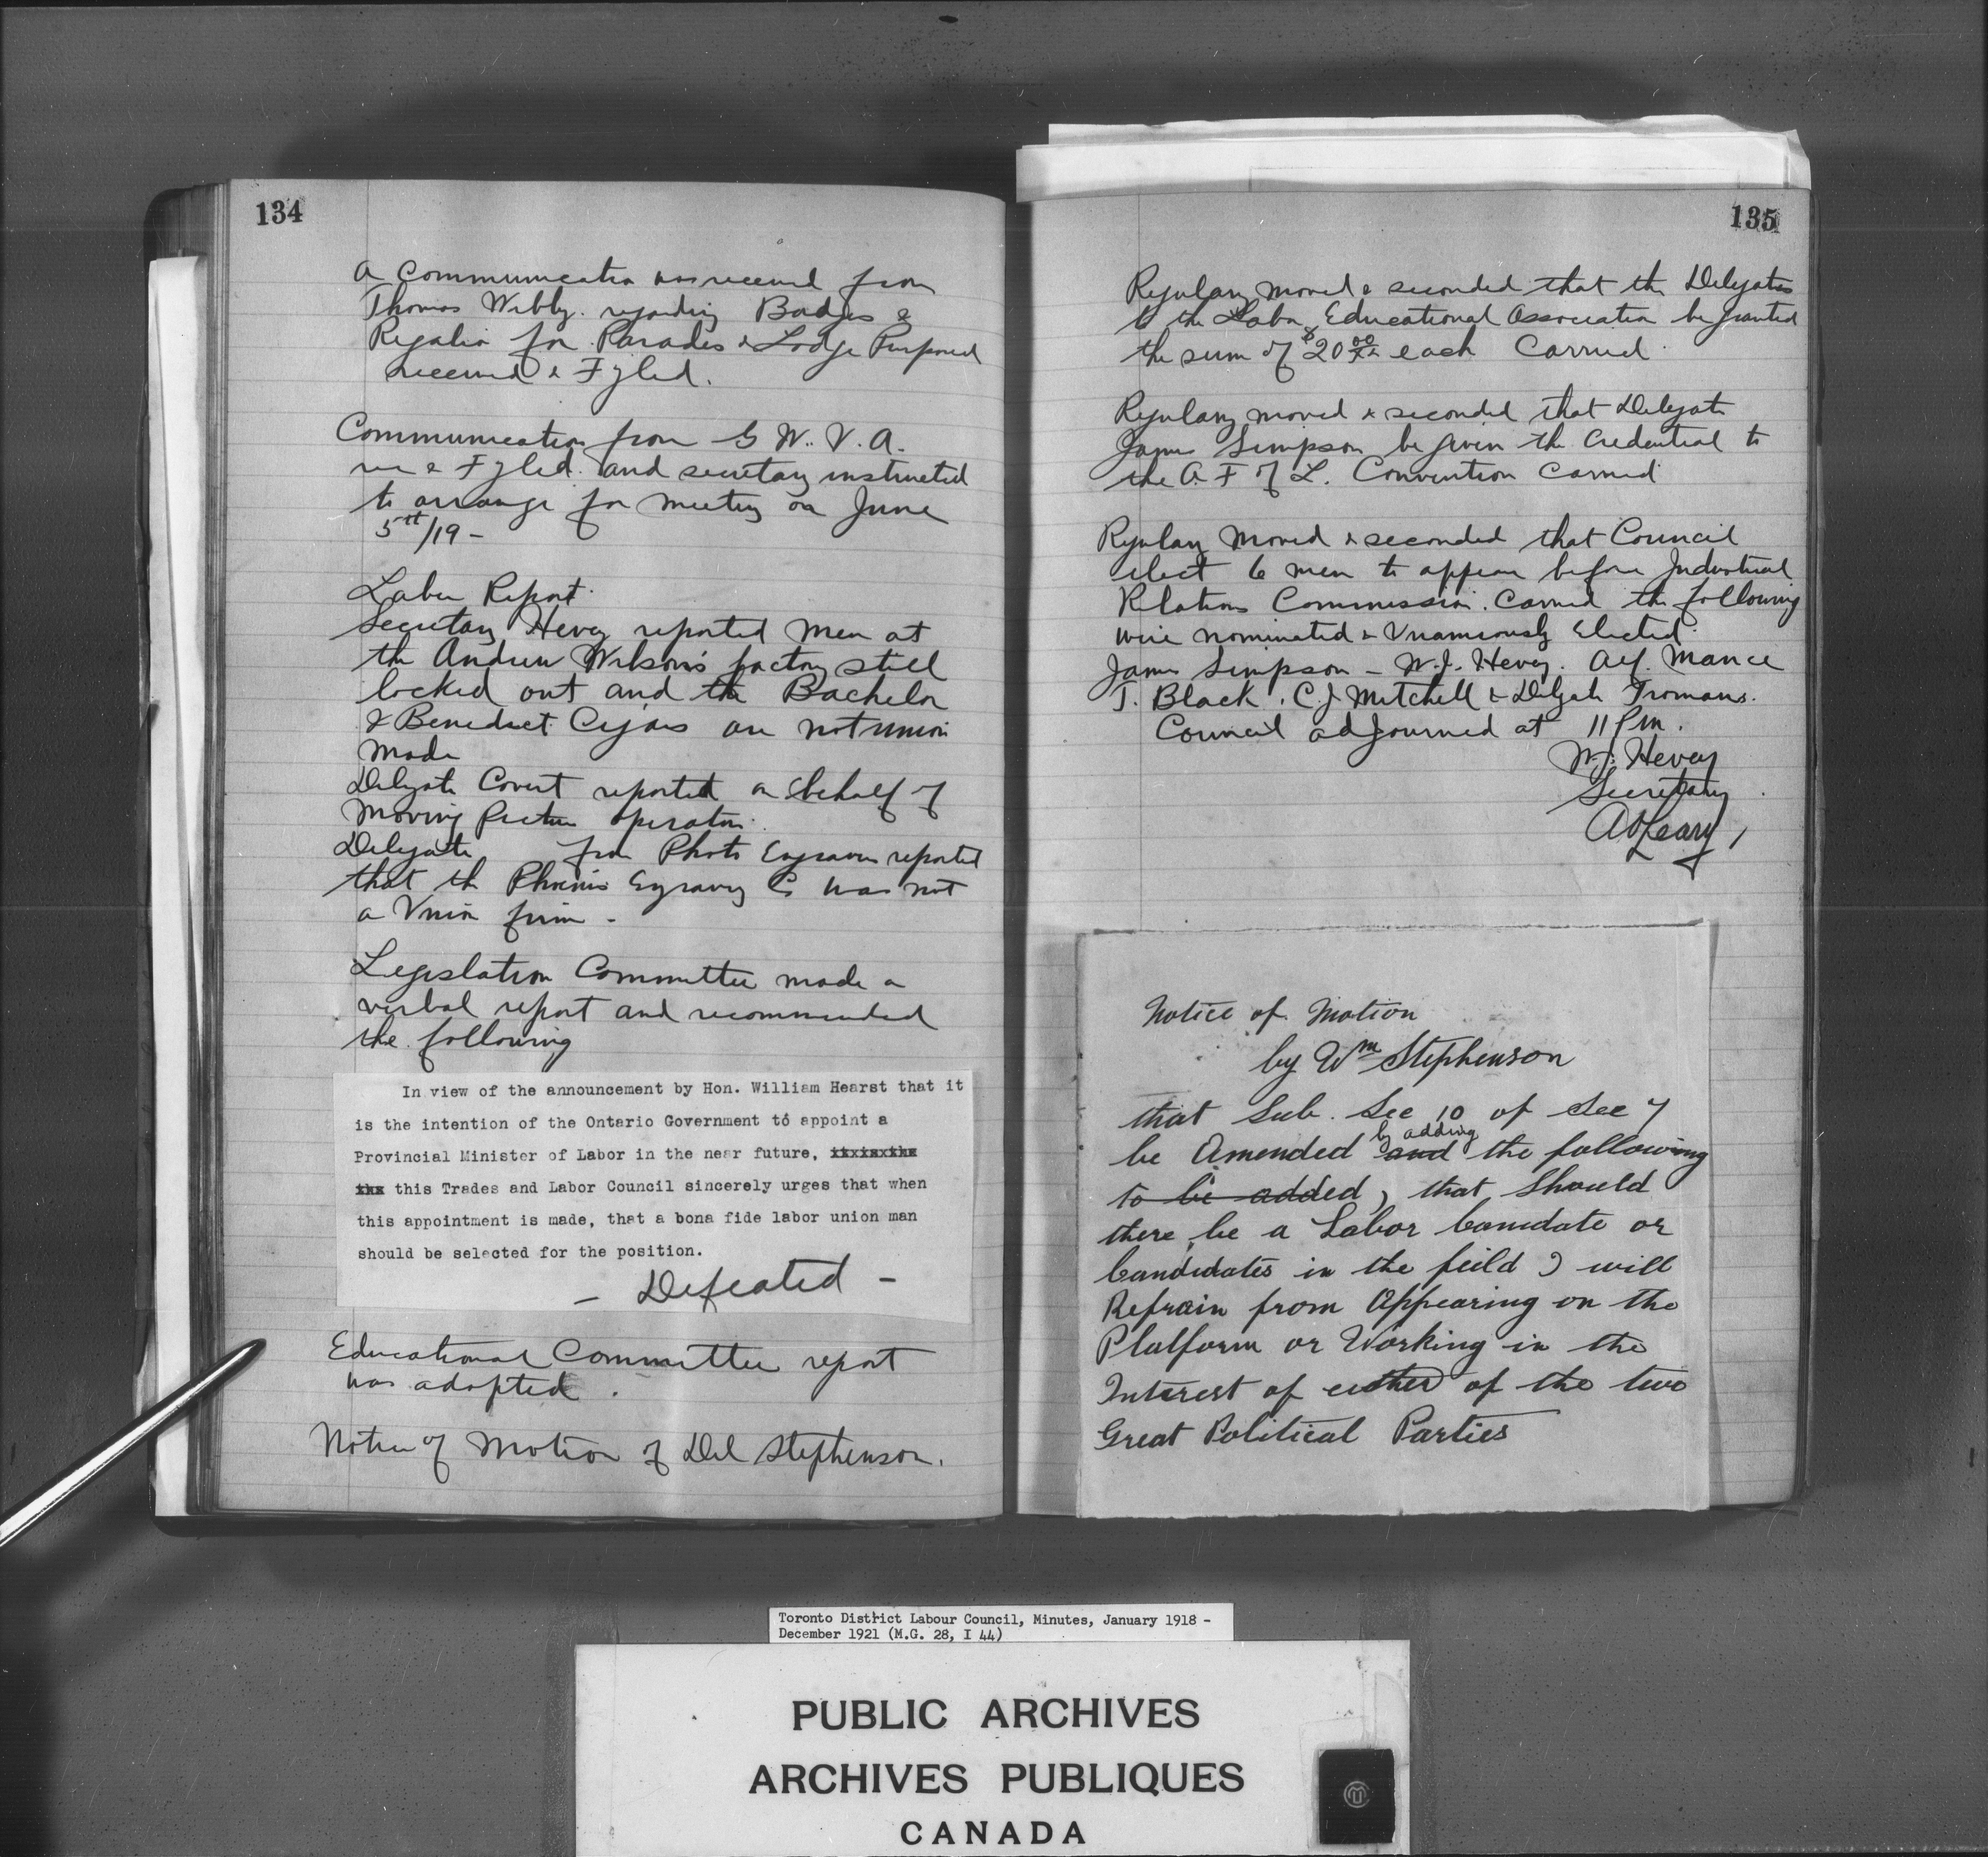 134
A Communication was received from
Thomas Webby. regarding Badges &
Regalia for Parades & Lodge Purposes
received & Fyled.
Communication from G. W. V. A.
rec & Fyled. and secretary instructed
to arrange for meeting on June
5th/19 -
Labor Report.
Secretary Hevey reported men at
the Andrew Wilson's factory still
locked out and the Bachelor
& Benedict Cigars are not union
made
Delegate Covert reported on behalf of
Moving Picture operators.
Delegate from Photo Engravers reported
that the Phoenix Egraving Co was not
a Union firm -
Legislation Committee made a
verbal report and recommended
the following
In view of the announcement by Hon. William Hearst that it
is the intention of the Ontario Government to appoint a
Provincial Minister of Labor in the near future,
this Trades and Labor Council sincerely urges that when
this appointment is made, that a bona fide labor union man
should be selected for the position.
- Defeated -
Educational Committee report
was adopted.
Notice of Motion of Del Stephenson.
135
Regulary moved & seconded that the Delegates
to the Labor Educational Association be granted
the sum of $20 00/xx each Carried
Regulary moved & seconded that Delegate
James Simpson be given the Credential to
the A. F of L. Convention Carried
Regulary Moved & seconded that Council
elect 6 men to appear before Industrial
Relations Commission. Carried the following
were nominated & Unamiously Elected.
James Simpson - W.J. Hevey. Alf. Mance
T. Black. C.J. Mitchell & Delegate Tromans.
Council adjourned at 11 P.m.
W.J. Hevey
Secretary
A OLeary
Notice of Motion
by Wm Stephenson
that Sub. Sec 10 of Sec 7
be Amended by adding and the following
to be added, that should
there be a Labor Canidate or
Candidates in the feild I will
Refrain from Appearing on the
Platform or Working in the
Interest of either of the two
Great Political Parties
Toronto District Labour Council, Minutes, January 1918 -
December 1921 (M.G. 28, I 44)
PUBLIC ARCHIVES
ARCHIVES PUBLIQUES
CANADA